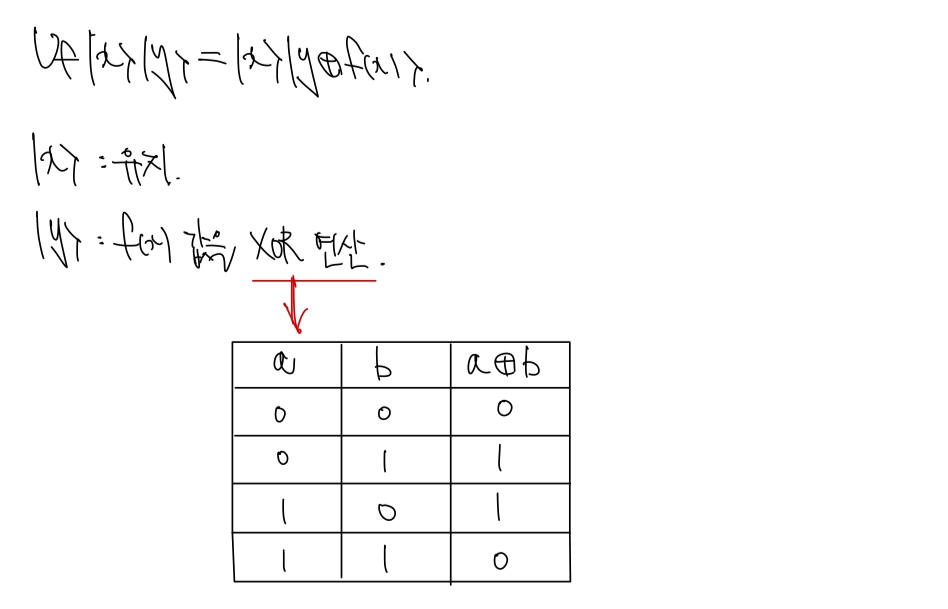 Uf|x⟩|y⟩=|x⟩|y⊕f(x)⟩.
|x⟩ : 유지.
|y⟩ : f(x) 값을 XOR 연산.
a b a⊕b
0 0 0
0 1 1
1 0 1
1 1 0